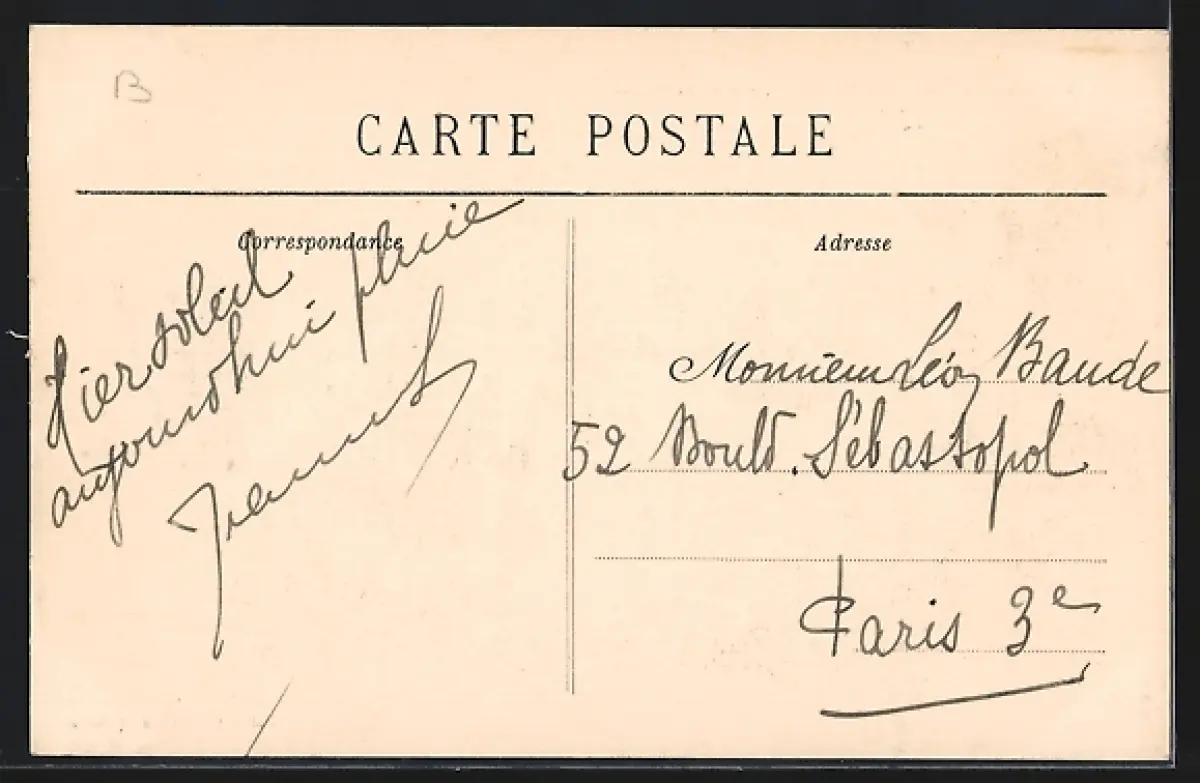 B
CARTE POSTALE
Correspondance
Hier soleil
aujourdhui pluie
Adresse
Monsieur Léon Baude
52 Bould. Sébastopol
Paris 3e